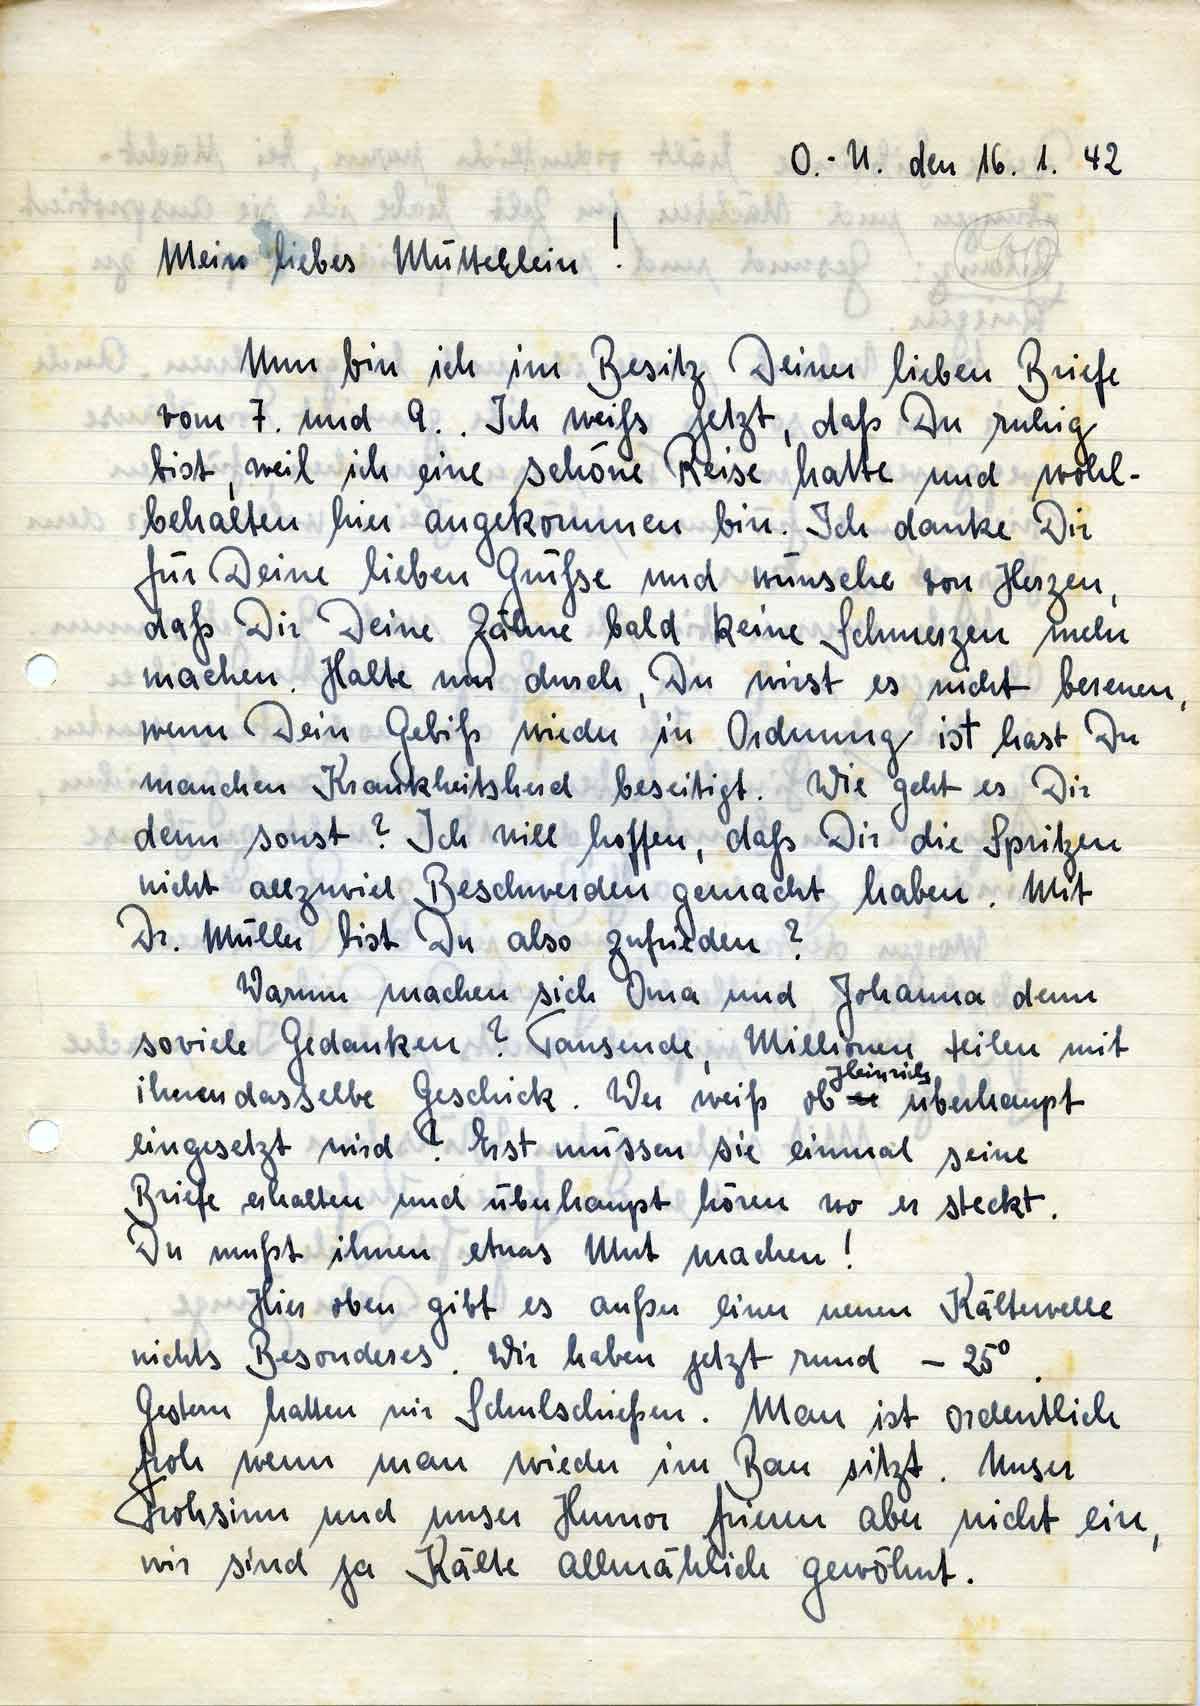 O.-U. den 16. 1. 42
Mein liebes Mütterlein!
Nun bin ich im Besitz Deiner lieben Briefe
vom 7. und 9.. Ich weiß jetzt, daß Du ruhig
bist, weil ich eine schöne Reise hatte und wohl-
behalten hier angekommen bin. Ich danke Dir
für Deine lieben Grüße und wünsche von Herzen,
daß Dir Deine Zähne bald keine Schmerzen mehr
machen. Halte nur durch, Du wirst es nicht bereuen,
wenn Dein Gebiß wieder in Ordnung ist hast Du
manchen Krankheitsherd beseitigt. Wie geht es Dir
denn sonst? Ich will hoffen, daß Dir die Spritzen
nicht allzuviel Beschwerden gemacht haben. Mit
Dr. Müller bist Du also zufrieden?
Warum machen sich Oma und Johanna denn
soviele Gedanken? Tausende, Millionen teilen mit
ihnen dasselbe Geschick. Wer weiß ob Heinrich überhaupt
eingesetzt wird? Erst müssen sie einmal seine
Briefe erhalten und überhaupt hören wo er steckt.
Du mußt ihnen etwas Mut machen!
Hier oben gibt es außer einer neuen Kältewelle
nichts Besonderes. Wir haben jetzt rund – 25°.
Gestern hatten wir Schulschießen. Man ist ordentlich
froh wenn man wieder im Bau sitzt. Unser
Frohsinn und unser Humor frieren aber nicht ein,
wir sind ja Kälte allmählich gewöhnt.